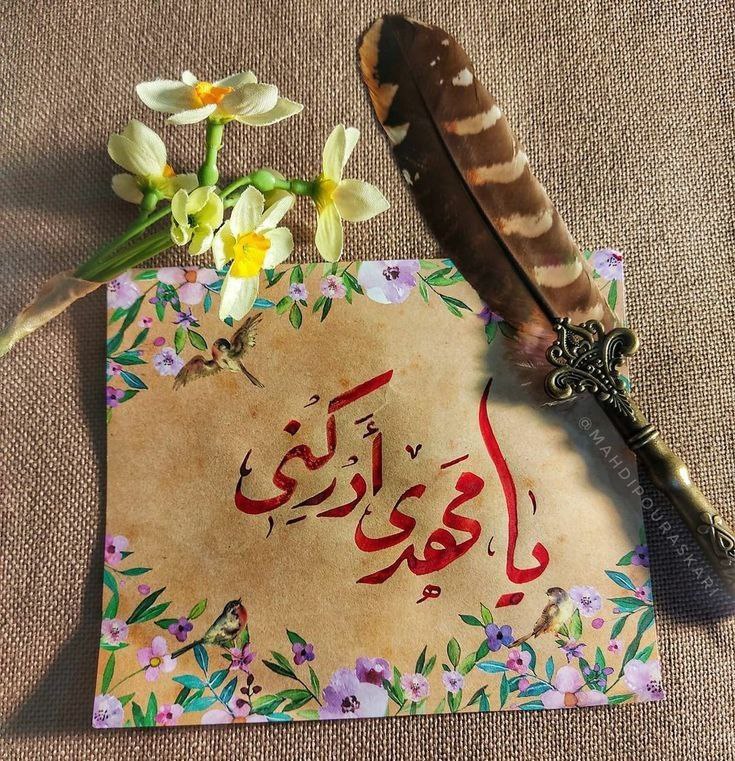 يا مهدى
أَدْرِكْنِى
@MAHDIPOURASKARI